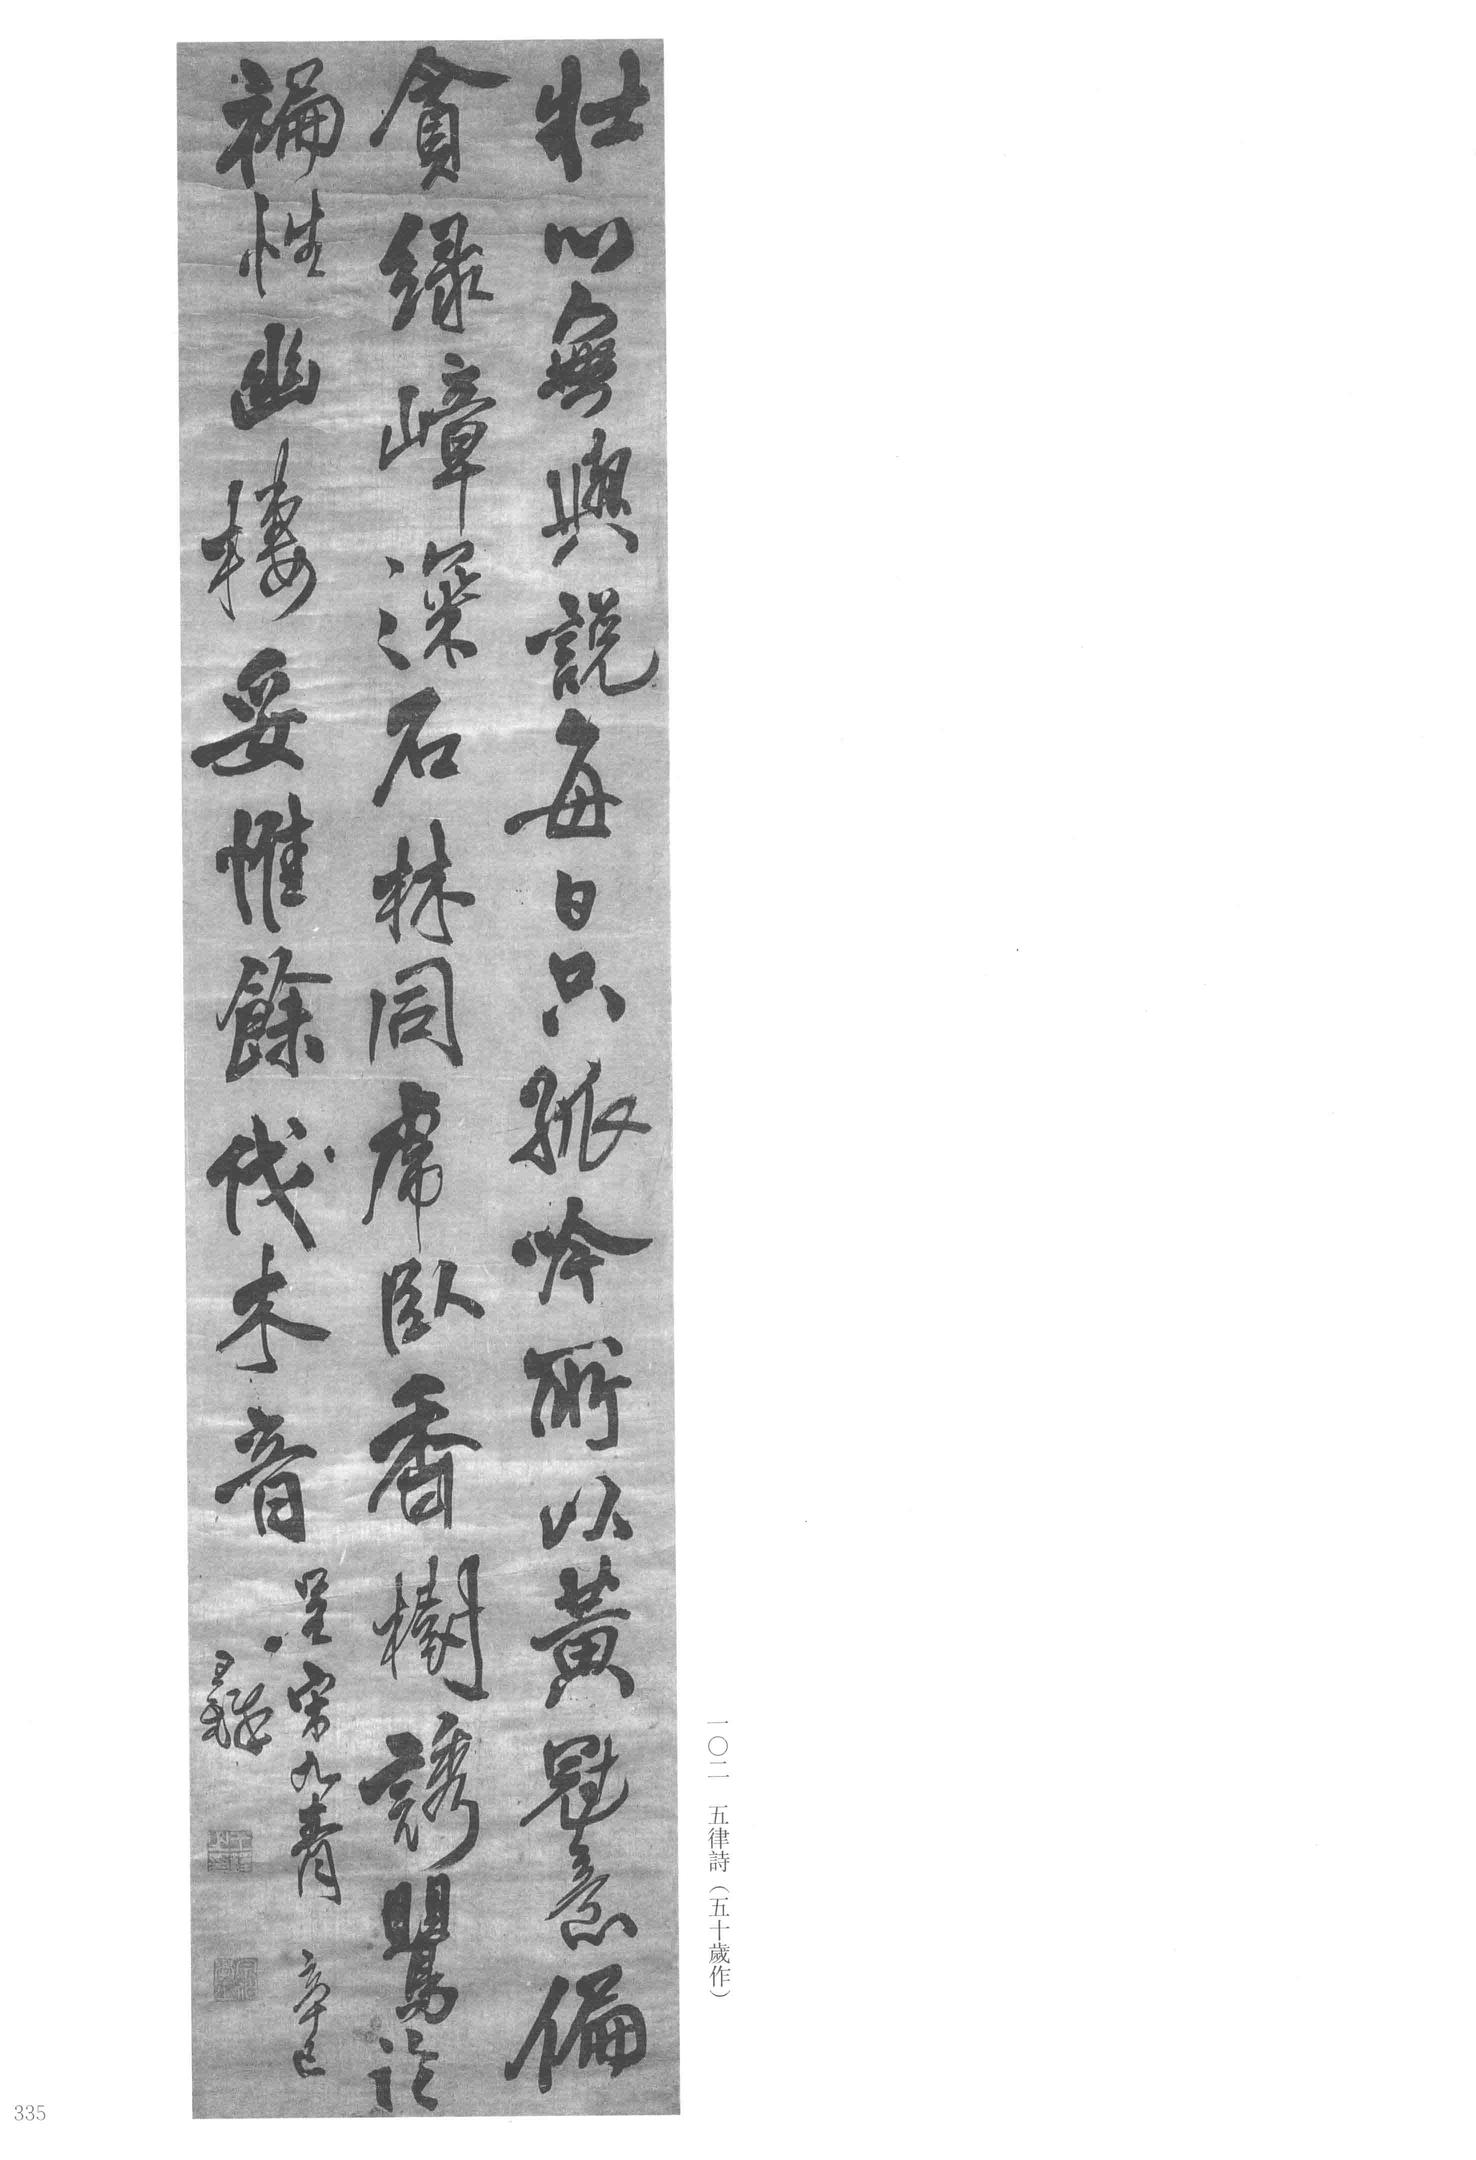 壯心無與說每日只孤吟所以黃冠意偏
貪綠嶂深石林同席臥香樹誘鸎諗
褊性幽棲妥惟餘伐木音
呈宋九青 辛巳
王鐸
一〇二 五律詩（五十歲作）
335